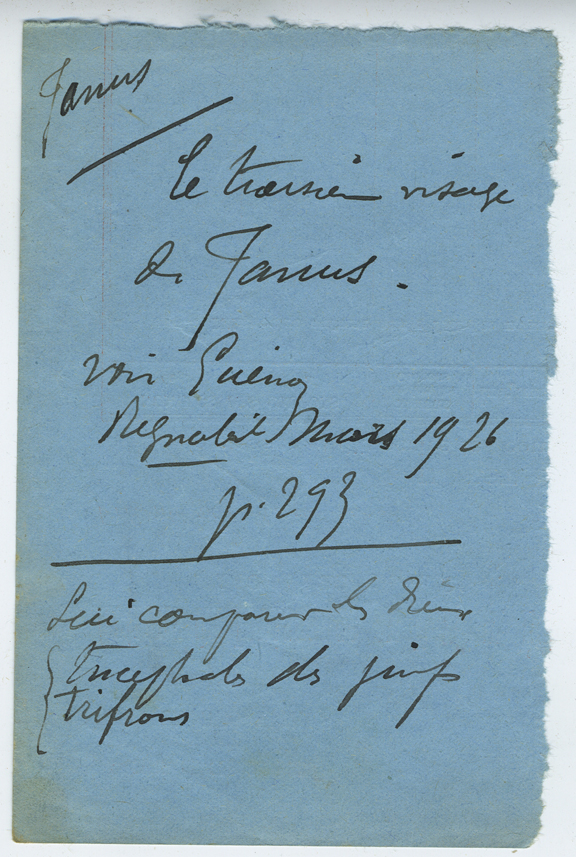 Janus
Le troisième visage
de Janus.
voir Guénon
Regnabit Mars 1926
p. 293
Lui comparer les dieux
tricéphales des
trifrons